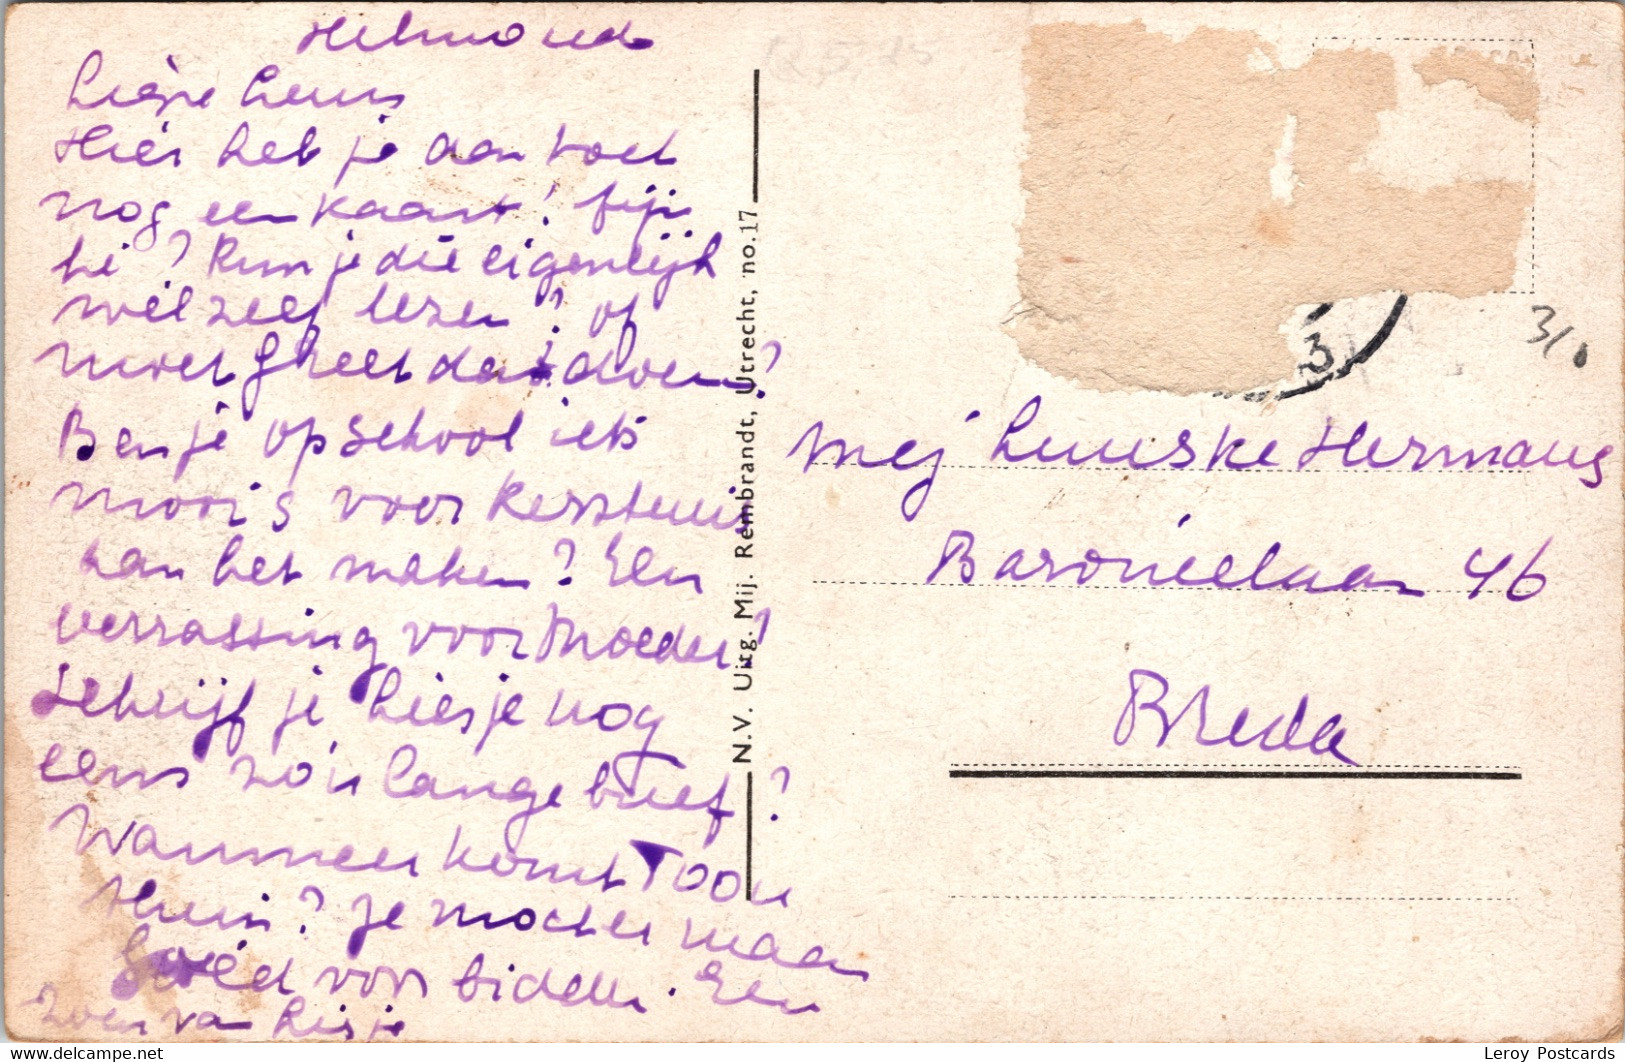 Helmond
Liefje Leuns
Hier heb je dan toch
nog een kaart! fijn
hè? Kun je die eigenlijk
wel zelf lezen? of
moet Greet dat doen?
Ben je op school iets
moois voor Kerstmis
aan het maken? Een
verrassing voor Moeder?
Schrijf je Liesje nog
eens zo'n lange brief?
Wanneer komt Toon
thuis? Je moeder maar
Goed voor bidden. Een
zoen van Liesje
N.V. Uitg. Mij. Rembrandt, Utrecht, no. 17
3
3/0
Mej Leunske Hermans
Baronielaan 46
Breda
Leroy Postcards
www.delcampe.net